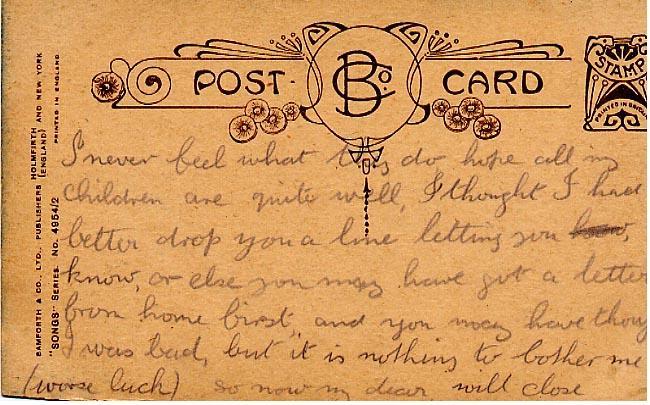 POST CARD
B Co.
STAMP
PRINTED IN
BAMFORTH & CO., LTD., PUBLISHERS HOLMFIRTH (ENGLAND) AND NEW YORK
"SONGS" SERIES. NO. 4954/2 PRINTED IN ENGLAND
I never feel what they do hope all my
children are quite well, I thought I had
better drop you a line letting you know,
know, or else you may have got a letter
from home first, and you may have thou
I was bad, but it is nothing to bother me
(worse luck) so now my dear will close